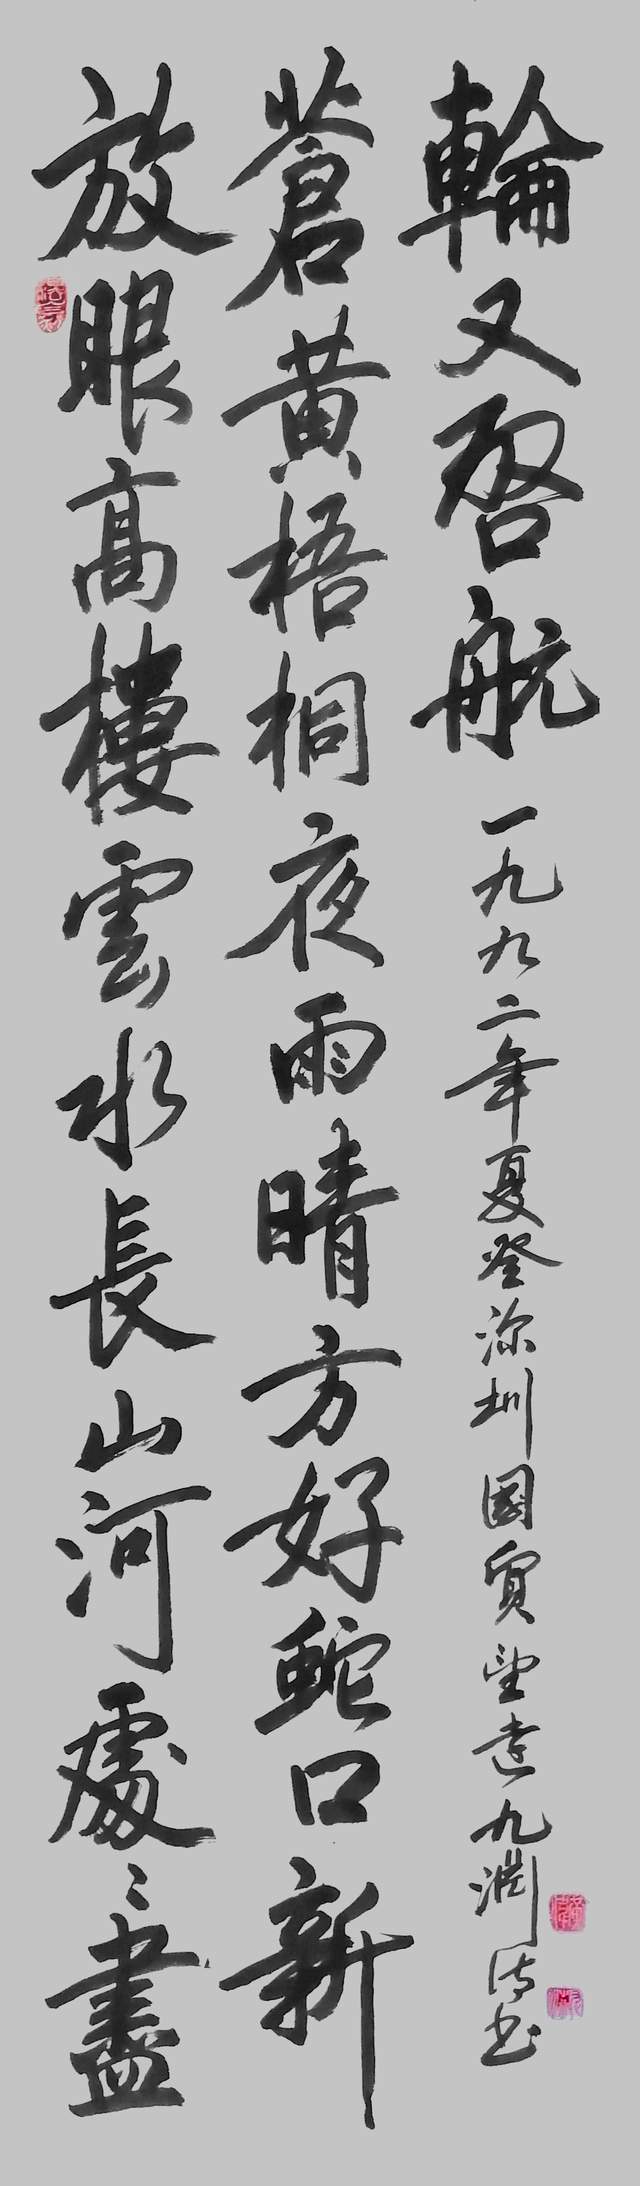 放眼高樓雲水長山河處〻盡
蒼黃梧桐夜雨晴方好蛇口新
輪又啓航 一九九二年夏登深圳國貿望遠九淵诗书